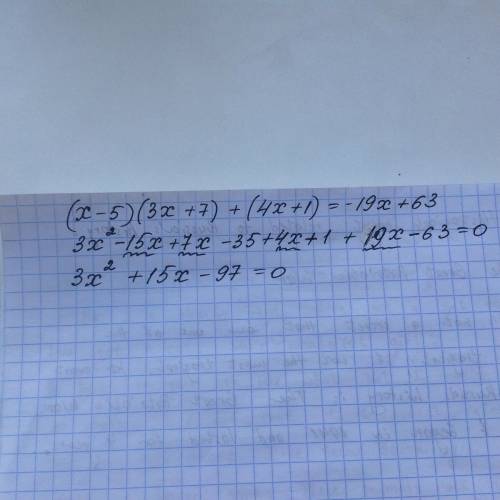 (x-5)(3x+7)+(4x+1)=-19x+63
3x²-15x+7x-35+4x+1+19x-63=0
3x²+15x-97=0